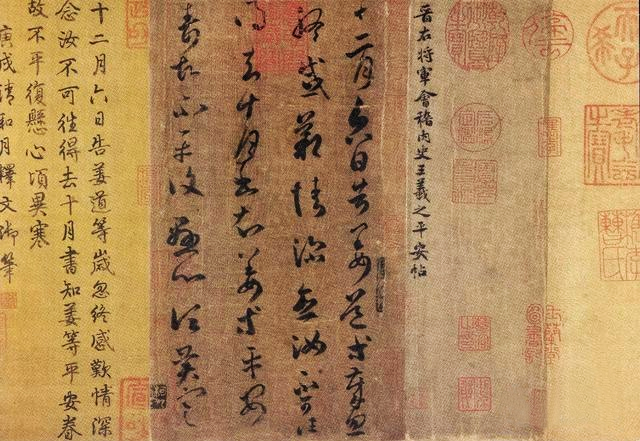 晉右將軍會稽內史王羲之平安帖
十二月六日告姜道等歲忽
終感歎情深念汝不可往
得去十月書知姜等平安
眷故不平復懸心頃異寒
十二月六日告姜道等歲忽終感歎情深
念汝不可徃得去十月書知姜等平安眷
故不平復懸心頃異寒
庚戌清和月釋文御筆